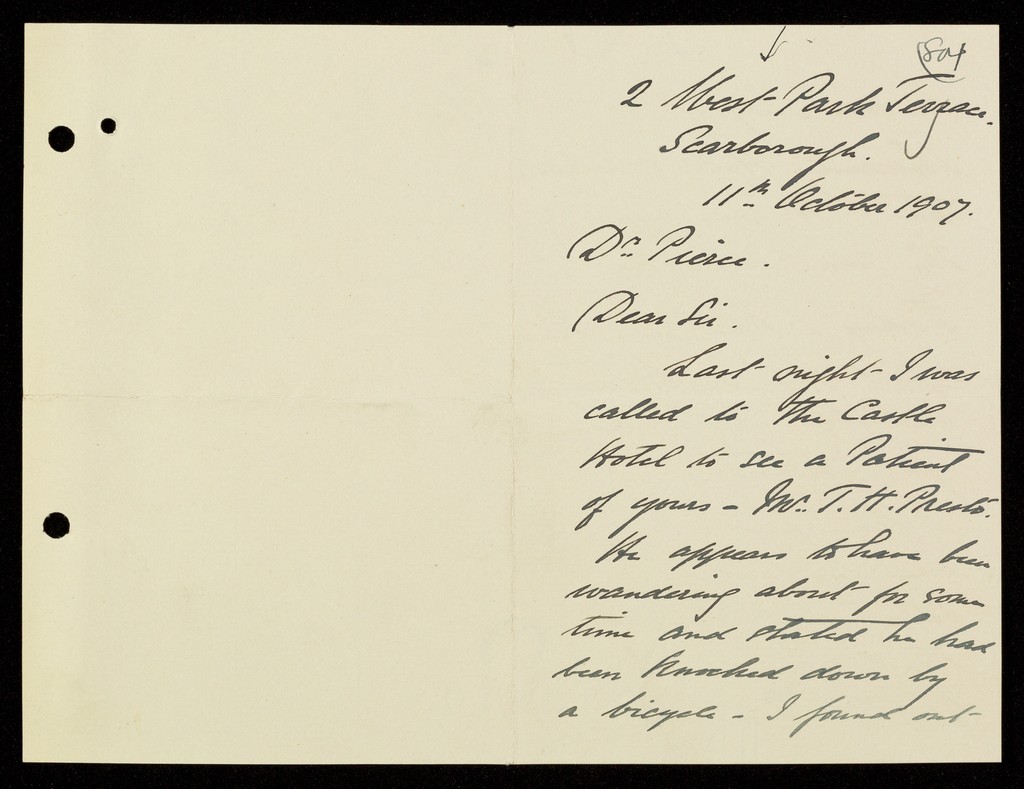 804
2 West Park Terrace.
Scarborough.
11th October 1907.
Dr Pierce.
Dear Sir.
Last night I was
called to the Castle
Hotel to see a Patient
of yours - Mr. T. H. Presto.
He appears to have been
wandering about for some
time and stated he had
been knocked down by
a bicycle - I found out